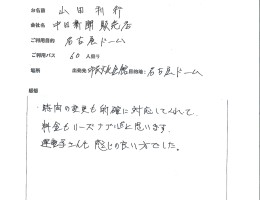 お名前 山田利行
会社名 中日新聞販売店
ご利用目的 名古屋ドーム
ご利用バス 60 人乗り
場所 出発地 目的地: 名古屋ドーム
感想
路内の変更も的確に対応してくれて、
料金もリーズナブルだと思います。
運転手さんも感じの良い方でした。